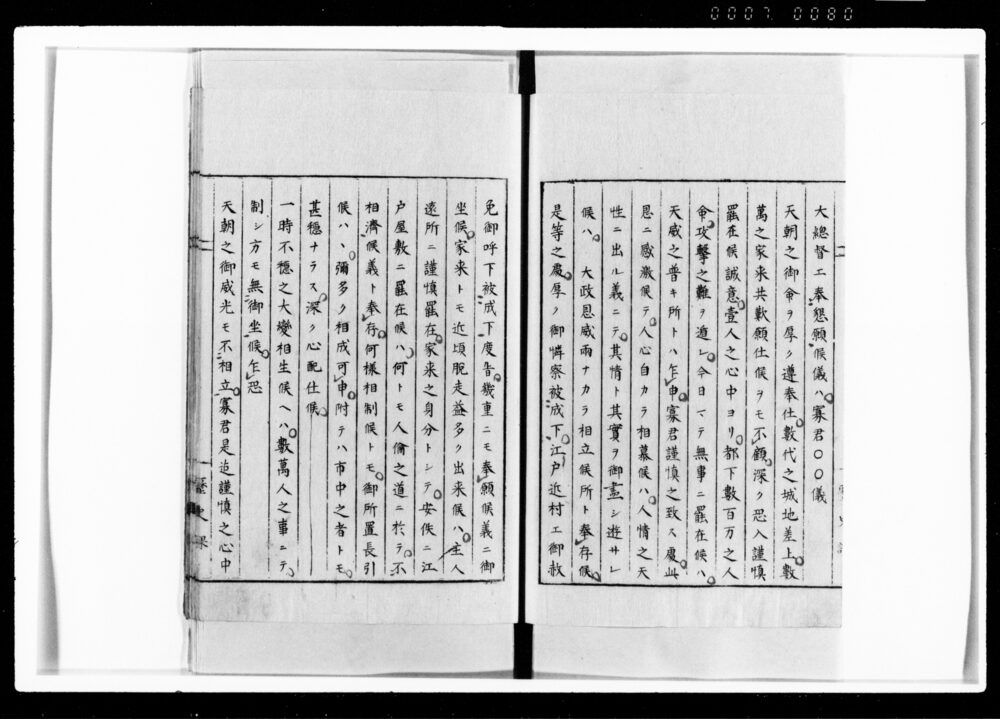 0007 0080
大總督エ奉懇願候儀ハ寡君〇〇儀
天朝之御命ヲ厚ク遵奉仕數代之城地差上數
萬之家来共歎願仕候ヲモ不顧深ク恐入謹慎
罷在候誠意壹人之心中ヨリ都下數百万之人
命攻撃之難ヲ遁レ今日マテ無事ニ罷在候ハ
天威之普キ所トハ乍申寡君謹慎之致ス處此
恩ニ感激候テ人心自カラ相慕候ハ人情之天
性ニ出ル義ニテ其情ト其實ヲ御盡シ遊サレ
候ハ 大政恩威兩ナカラ相立候所ト奉存候
是等之處厚ク御憐察被成下江戸近村エ御赦
免御呼下被成下度旨幾重ニモ奉願候義ニ御
坐候家来トモ近頃脱走益多ク出来候ハ主人
遠所ニ謹慎罷在家来之身分トシテ安佚ニ江
戸屋敷ニ罷在候ハ何トモ人倫之道ニ於テ不
相濟候義ト奉存何樣相制候トモ御所置長引
候ハヽ彌多ク相成可申附テハ市中之者トモ
甚穏ナラス深ク心配仕候
一時不穏之大變相生候ヘハ數萬人之事ニテ
制シ方モ無御坐候乍恐
天朝之御威光モ不相立寡君是迄謹慎之心中
歴史課